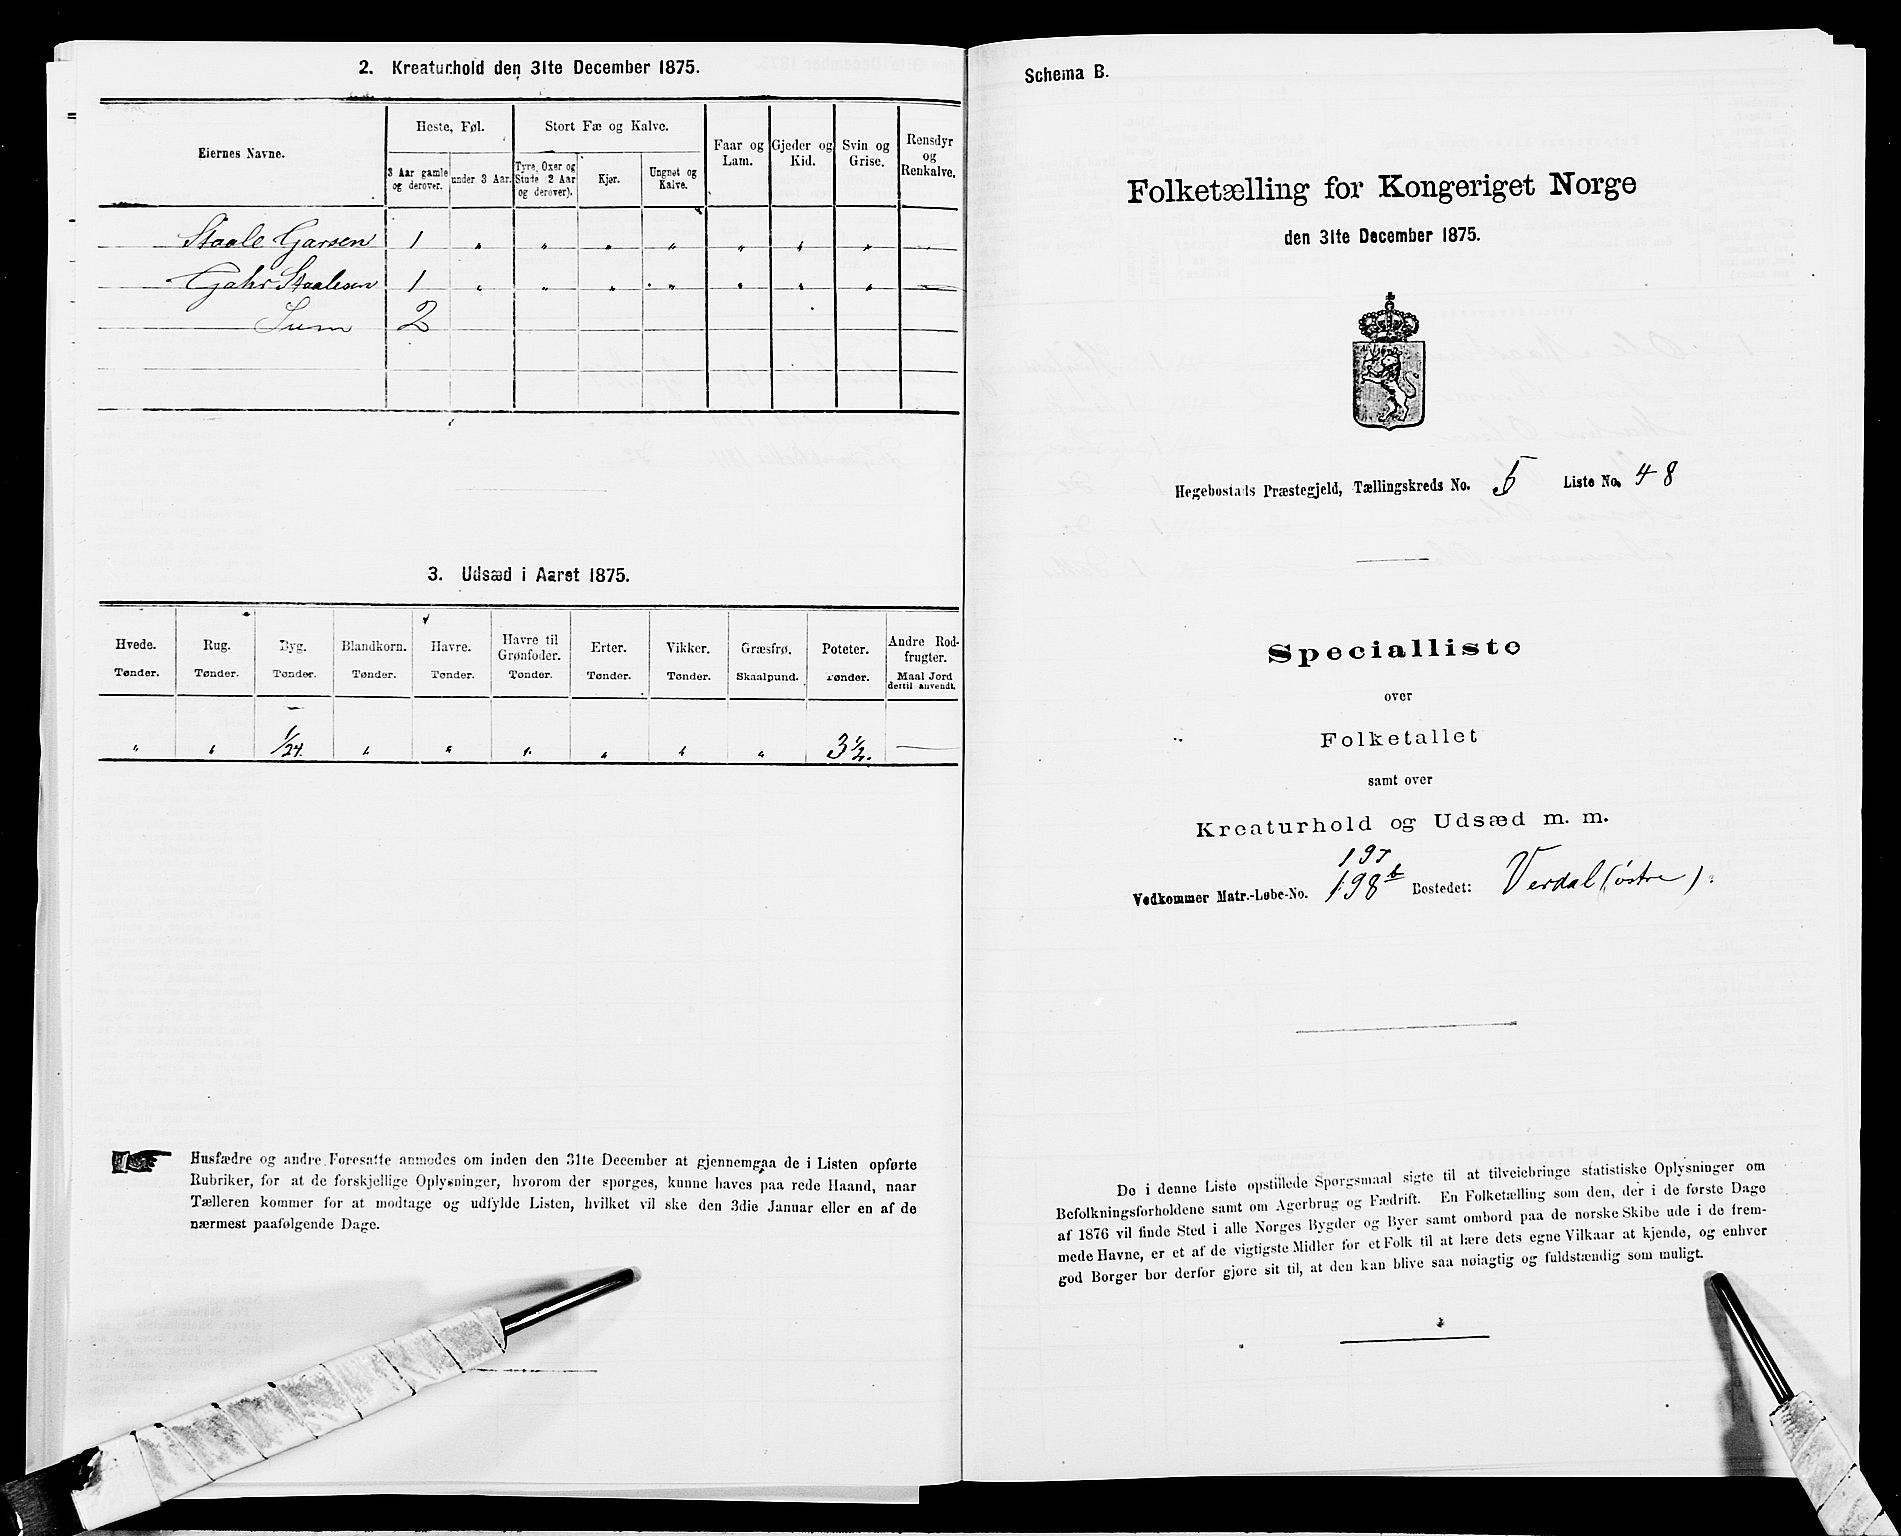 2. Kreaturhold den 31te December 1875.
Eiernes Navne.
Heste, Føl.
3 Aar gamle og derover.
under 3 Aar.
Stort Fæ og Kalve.
Tyre, Oxer og Stude 2 Aar og derover).
Kjør.
Ungnøt og Kalve.
Faar og Lam.
Gjeder og Kid.
Svin og Grise.
Rensdyr og Renkalve.
Staale Garsen 1 " " " " " " " —
Gahr Staalesen 1 " " " " " " " —
Sum 2
3. Udsæd i Aaret 1875.
Hvede. Tønder.
Rug. Tønder.
Byg. Tønder.
Blandkorn. Tønder.
Havre. Tønder.
Havre til Grønfoder. Tønder.
Erter. Tønder.
Vikker. Tønder.
Græsfrø. Skaalpund.
Poteter. Tønder.
Andre Rodfrugter. Maal Jord dertil anvendt.
" " 1/24. " " " " " " 3 1/2. —
Husfædre og andre Foresatte anmodes om inden den 31te December at gjennemgaa de i Listen opførte
Rubriker, for at de forskjellige Oplysninger, hvorom der spørges, kunne haves paa rede Haand, naar
Tælleren kommer for at modtage og udfylde Listen, hvilket vil ske den 3die Januar eller en af de
nærmest paafølgende Dage.
Schema B.
Folketælling for Kongeriget Norge
den 31te December 1875.
Hegebostads Præstegjeld, Tællingskreds No. 5 Liste No. 48
Specialliste
over
Folketallet
samt over
Kreaturhold og Udsæd m. m.
197
Vedkommer Matr.-Løbe-No. 198b Bostedet: Verdal (østre).
De i denne Liste opstillede Spørgsmaal sigte til at tilveiebringe statistiske Oplysninger om
Befolkningsforholdene samt om Agerbrug og Fædrift. En Folketælling som den, der i de første Dage
af 1876 vil finde Sted i alle Norges Bygder og Byer samt ombord paa de norske Skibe ude i de frem-
mede Havne, er et af de vigtigste Midler for et Folk til at lære dets egne Vilkaar at kjende, og enhver
god Borger bør derfor gjøre sit til, at den kan blive saa nøiagtig og fuldstændig som muligt.